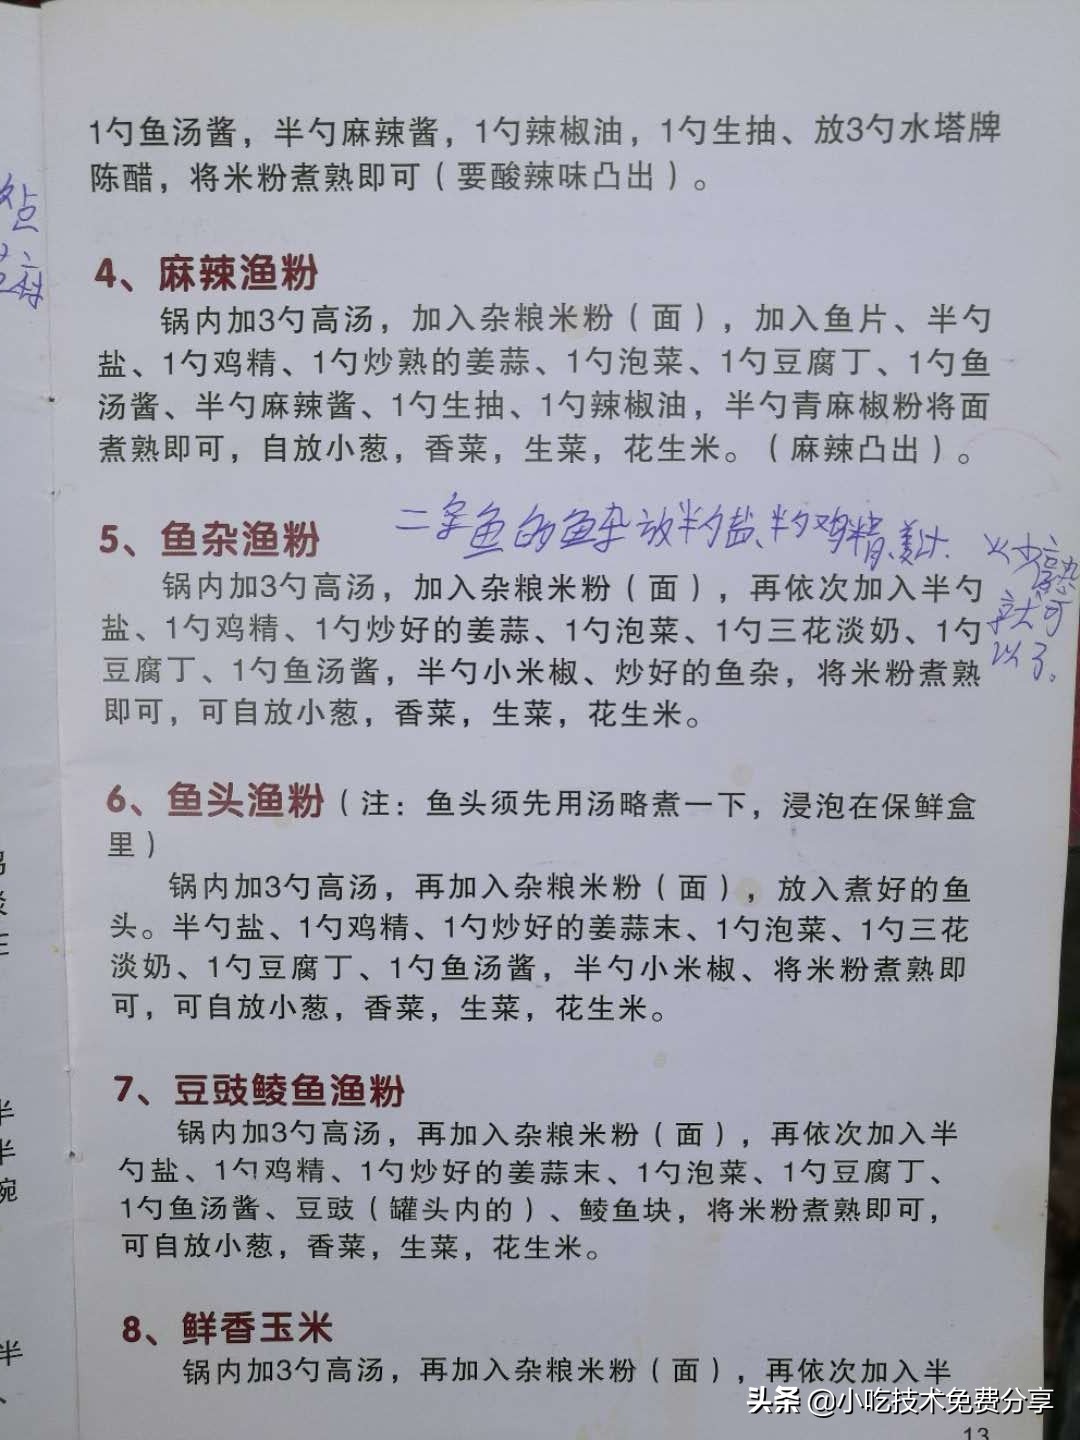 1勺鱼汤酱，半勺麻辣酱，1勺辣椒油，1勺生抽、放3勺水塔牌
陈醋，将米粉煮熟即可（要酸辣味凸出）。
4、麻辣渔粉
锅内加3勺高汤，加入杂粮米粉（面），加入鱼片、半勺
盐、1勺鸡精、1勺炒熟的姜蒜、1勺泡菜、1勺豆腐丁、1勺鱼
汤酱、半勺麻辣酱、1勺生抽、1勺辣椒油，半勺青麻椒粉将面
煮熟即可，自放小葱，香菜，生菜，花生米。（麻辣凸出）。
5、鱼杂渔粉
鱼的鱼杂放半勺盐、半勺鸡精、姜汁、
就可
以了。
锅内加3勺高汤，加入杂粮米粉（面），再依次加入半勺
盐、1勺鸡精、1勺炒好的姜蒜、1勺泡菜、1勺三花淡奶、1勺
豆腐丁、1勺鱼汤酱，半勺小米椒、炒好的鱼杂，将米粉煮熟
即可，可自放小葱，香菜，生菜，花生米。
6、鱼头渔粉（注：鱼头须先用汤略煮一下，浸泡在保鲜盒
里）
锅内加3勺高汤，再加入杂粮米粉（面），放入煮好的鱼
头。半勺盐、1勺鸡精、1勺炒好的姜蒜末、1勺泡菜、1勺三花
淡奶、1勺豆腐丁、1勺鱼汤酱，半勺小米椒、将米粉煮熟即
可，可自放小葱，香菜，生菜，花生米。
7、豆豉鲮鱼渔粉
锅内加3勺高汤，再加入杂粮米粉（面），再依次加入半
勺盐、1勺鸡精、1勺炒好的姜蒜末、1勺泡菜、1勺豆腐丁、
1勺鱼汤酱、豆豉（罐头内的）、鲮鱼块，将米粉煮熟即可，
可自放小葱，香菜，生菜，花生米。
8、鲜香玉米
锅内加3勺高汤，再加入杂粮米粉（面），再依次加入半
头条 @小吃技术免费分享
13